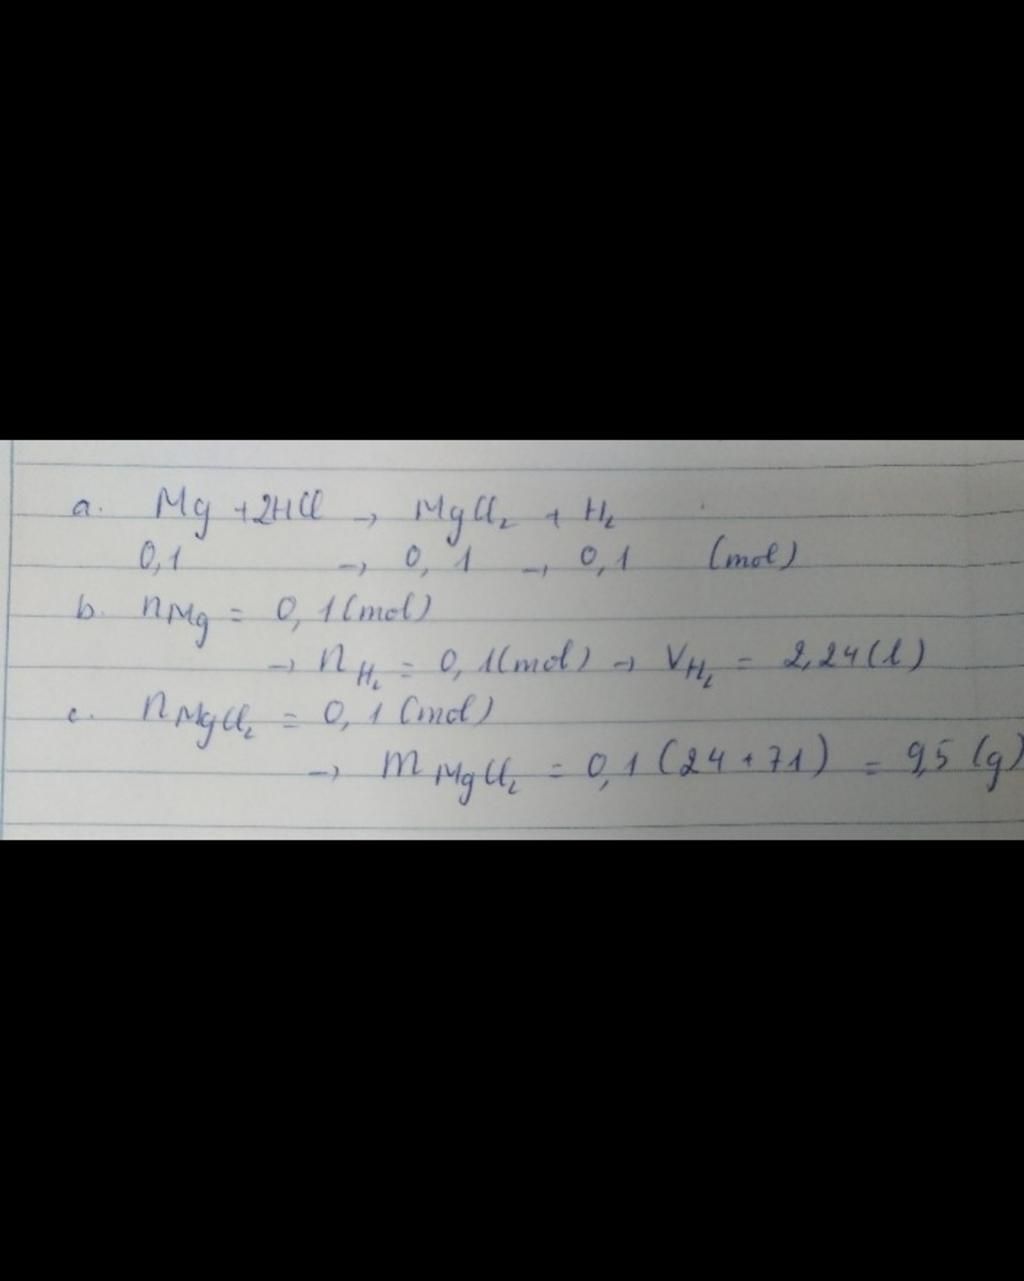 a. Mg + 2HCl → MgCl₂ + H₂
0,1 → 0,1 → 0,1 (mol)
b. nMg = 0,1 (mol)
→ nH₂ = 0,1 (mol) → VH₂ = 2,24 (l)
c. nMgCl₂ = 0,1 (mol)
→ mMgCl₂ = 0,1 (24 + 71) = 9,5 (g)